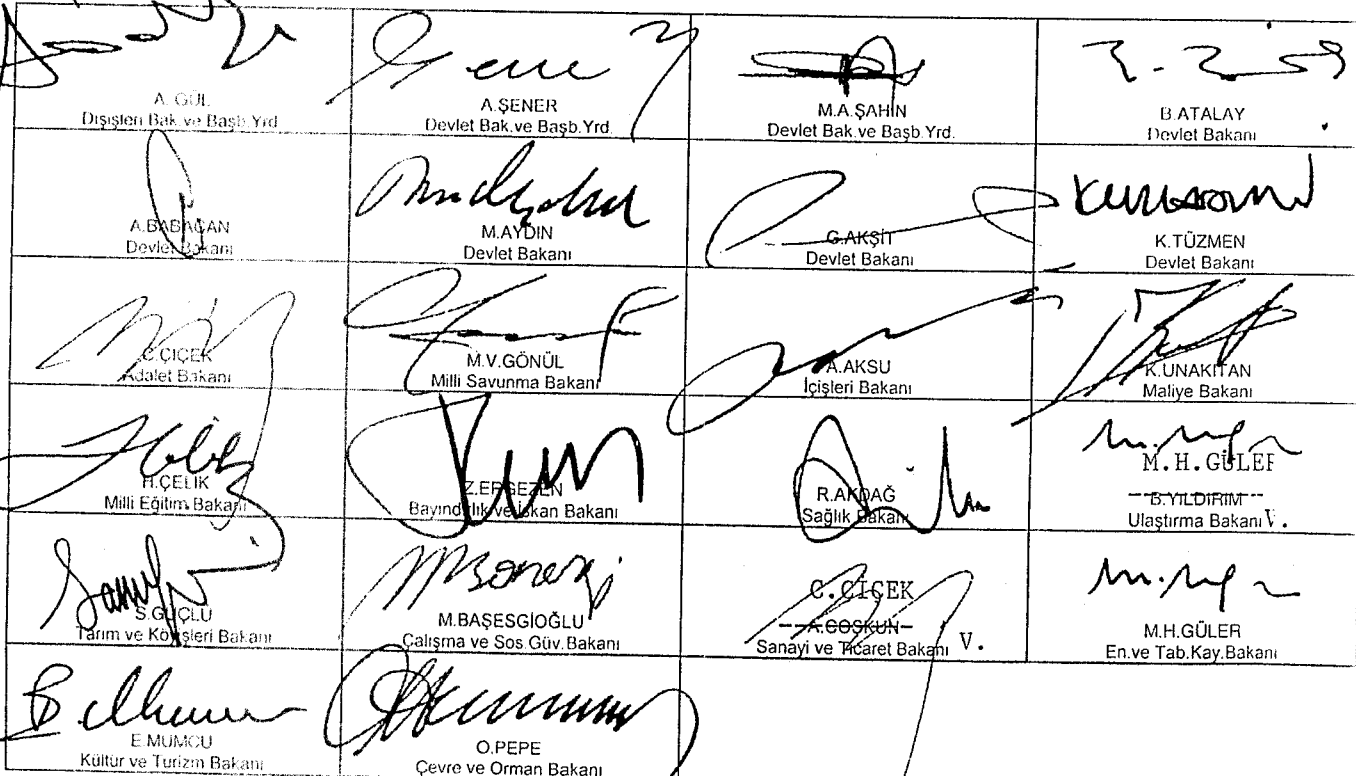 A. GÜL
Dışişleri Bak.ve Başb.Yrd
A.ŞENER
Devlet Bak.ve Başb.Yrd.
M.A.ŞAHİN
Devlet Bak.ve Başb.Yrd.
B.ATALAY
Devlet Bakanı
A.BABACAN
Devlet Bakanı
M.AYDIN
Devlet Bakanı
G.AKŞİT
Devlet Bakanı
K.TÜZMEN
Devlet Bakanı
C.ÇİÇEK
Adalet Bakanı
M.V.GÖNÜL
Milli Savunma Bakanı
A.AKSU
İçişleri Bakanı
K.UNAKITAN
Maliye Bakanı
H.ÇELİK
Milli Eğitim Bakanı
Z.ERGEZEN
Bayındırlık ve İskan Bakanı
R.AKDAĞ
Sağlık Bakanı
M.H.GÜLER
B.YILDIRIM
Ulaştırma Bakanı V.
S.GÜÇLÜ
Tarım ve Köyişleri Bakanı
M.BAŞESGİOĞLU
Çalışma ve Sos.Güv.Bakanı
C.ÇİÇEK
A.COŞKUN
Sanayi ve Ticaret Bakanı V.
M.H.GÜLER
En.ve Tab.Kay.Bakanı
E.MUMCU
Kültür ve Turizm Bakanı
O.PEPE
Çevre ve Orman Bakanı